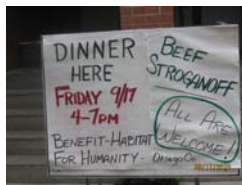 DINNER
HERE
FRIDAY 9/17
4-7PM
BENEFIT-HABITAT
FOR HUMANITY -
BEEF
STROGANOFF
ALL ARE
WELCOME!